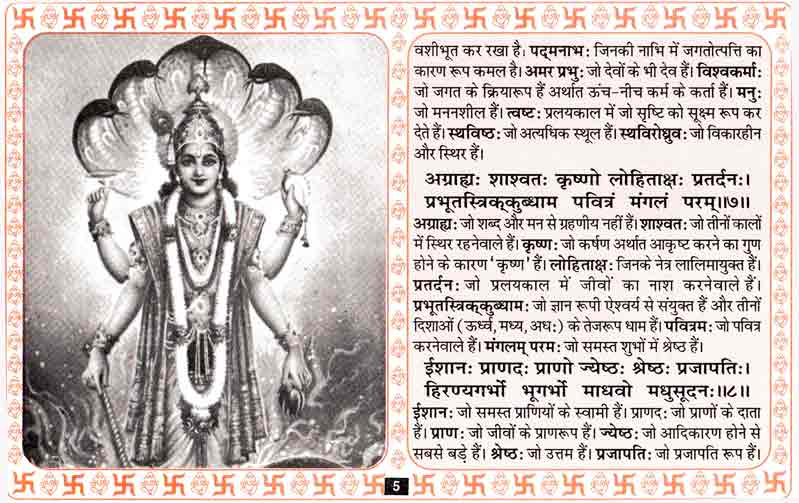 वशीभूत कर रखा है। पद्मनाभ: जिनकी नाभि में जगतोत्पत्ति का
कारण रूप कमल है। अमर प्रभु: जो देवों के भी देव हैं। विश्वकर्मा:
जो जगत के क्रियारूप हैं अर्थात ऊंच-नीच कर्म के कर्ता हैं। मनु:
जो मननशील हैं। त्वष्ट: प्रलयकाल में जो सृष्टि को सूक्ष्म रूप कर
देते हैं। स्थविष्ठ: जो अत्यधिक स्थूल हैं। स्थविरोध्रुव: जो विकारहीन
और स्थिर हैं।
अग्राह्य: शाश्वत: कृष्णो लोहिताक्ष: प्रतर्दन:।
प्रभूतस्त्रिककुब्धाम पवित्रं मंगलं परम्॥७॥
अग्राह्य: जो शब्द और मन से ग्रहणीय नहीं हैं। शाश्वत: जो तीनों कालों
में स्थिर रहनेवाले हैं। कृष्ण: जो कर्षण अर्थात आकृष्ट करने का गुण
होने के कारण ‘कृष्ण’ हैं। लोहिताक्ष: जिनके नेत्र लालिमायुक्त हैं।
प्रतर्दन: जो प्रलयकाल में जीवों का नाश करनेवाले हैं।
प्रभूतस्त्रिककुब्धाम: जो ज्ञान रूपी ऐश्वर्य से संयुक्त हैं और तीनों
दिशाओं (ऊर्ध्व, मध्य, अध:) के तेजरूप धाम हैं। पवित्रम: जो पवित्र
करनेवाले हैं। मंगलम् परम: जो समस्त शुभों में श्रेष्ठ हैं।
ईशान: प्राणद: प्राणो ज्येष्ठ: श्रेष्ठ: प्रजापति:।
हिरण्यगर्भो भूगर्भो माधवो मधुसूदन:॥८॥
ईशान: जो समस्त प्राणियों के स्वामी हैं। प्राणद: जो प्राणों के दाता
हैं। प्राण: जो जीवों के प्राणरूप हैं। ज्येष्ठ: जो आदिकारण होने से
सबसे बड़े हैं। श्रेष्ठ: जो उत्तम हैं। प्रजापति: जो प्रजापति रूप हैं।
5